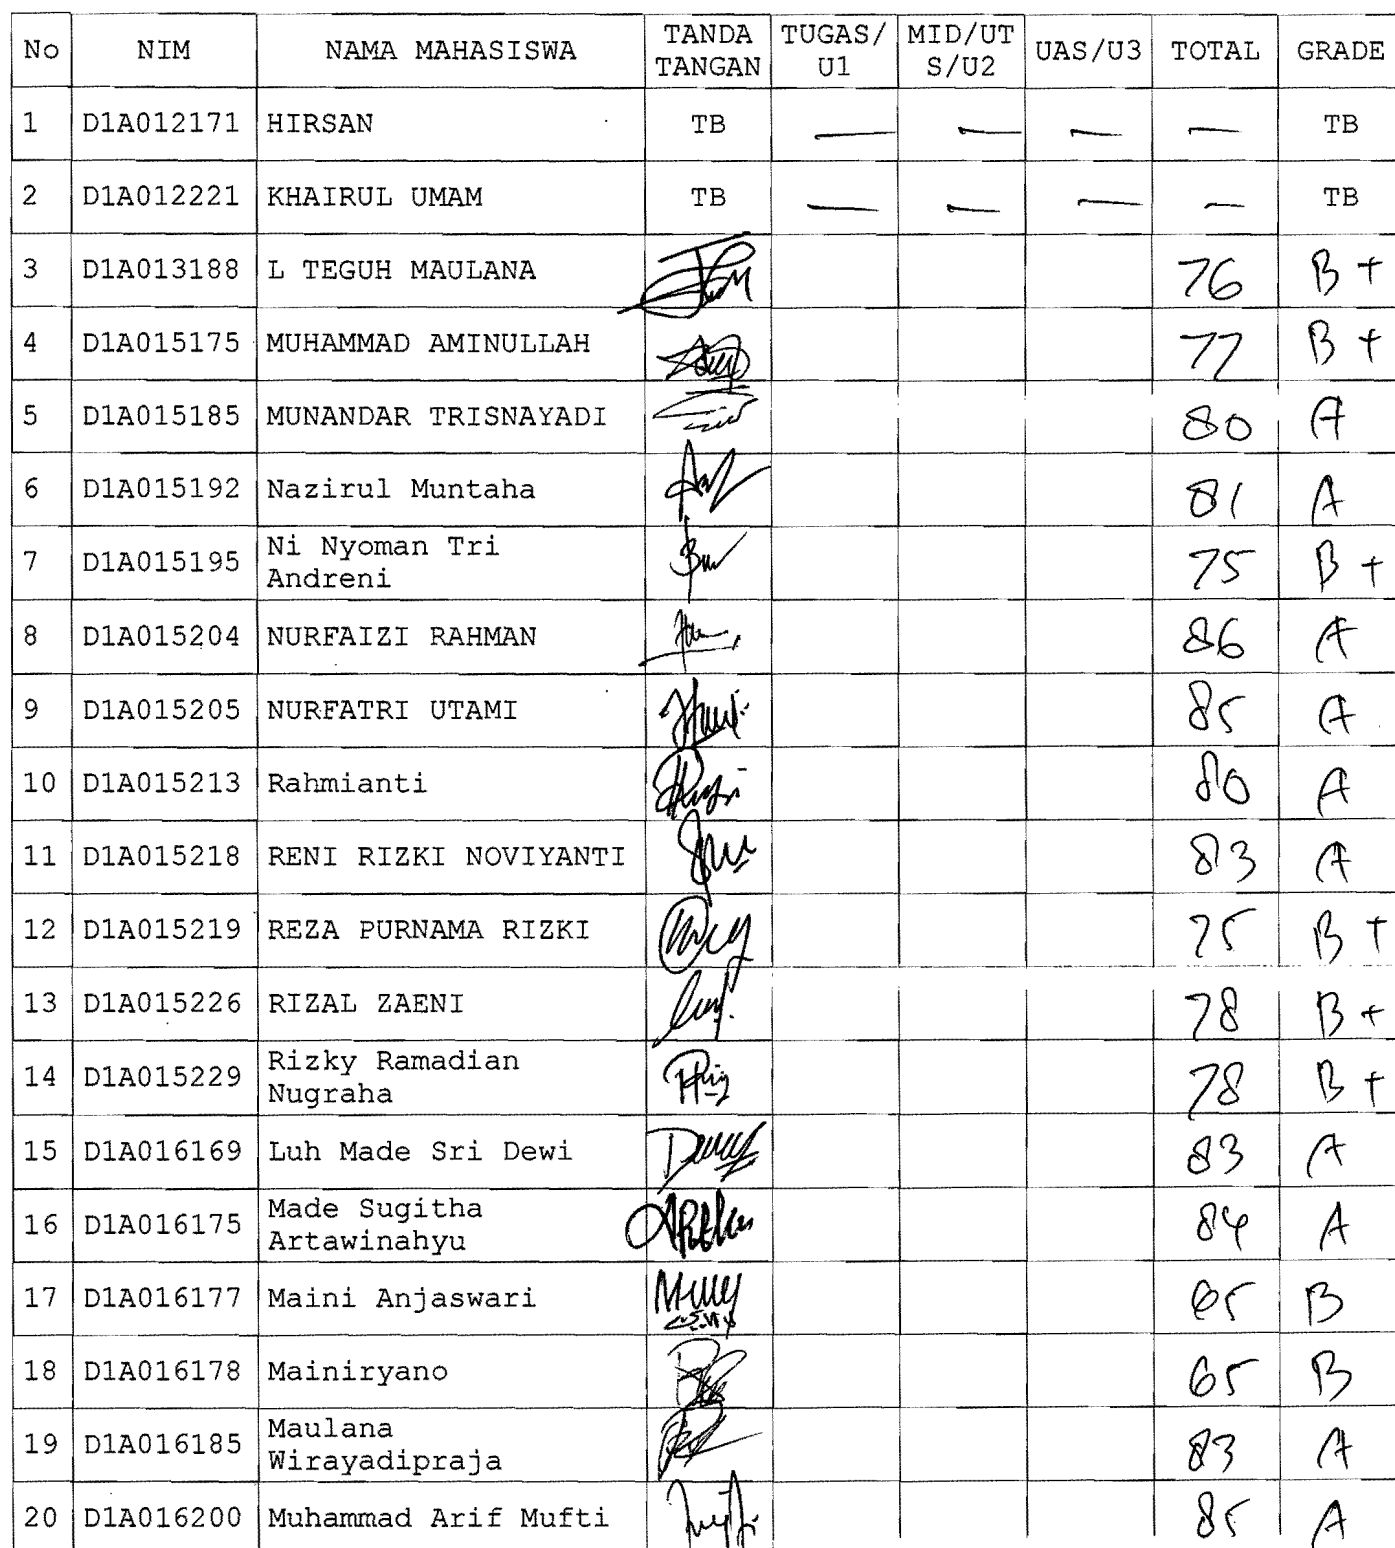 No NIM NAMA MAHASISWA TANDA TANGAN TUGAS/U1 MID/UTS/U2 UAS/U3 TOTAL GRADE
1 D1A012171 HIRSAN TB — — — — TB
2 D1A012221 KHAIRUL UMAM TB — — — — TB
3 D1A013188 L TEGUH MAULANA 76 B+
4 D1A015175 MUHAMMAD AMINULLAH 77 B+
5 D1A015185 MUNANDAR TRISNAYADI 80 A
6 D1A015192 Nazirul Muntaha 81 A
7 D1A015195 Ni Nyoman Tri
Andreni 75 B+
8 D1A015204 NURFAIZI RAHMAN 86 A
9 D1A015205 NURFATRI UTAMI 85 A
10 D1A015213 Rahmianti 80 A
11 D1A015218 RENI RIZKI NOVIYANTI 83 A
12 D1A015219 REZA PURNAMA RIZKI 75 B+
13 D1A015226 RIZAL ZAENI 78 B+
14 D1A015229 Rizky Ramadian
Nugraha 78 B+
15 D1A016169 Luh Made Sri Dewi 83 A
16 D1A016175 Made Sugitha
Artawinahyu 84 A
17 D1A016177 Maini Anjaswari 65 B
18 D1A016178 Mainiryano 65 B
19 D1A016185 Maulana
Wirayadipraja 83 A
20 D1A016200 Muhammad Arif Mufti 85 A